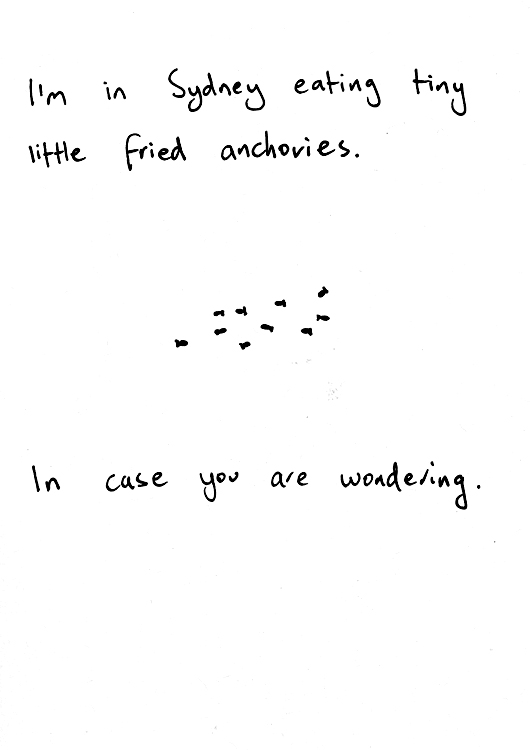 I'm in Sydney eating tiny
little fried anchovies.
In case you are wondering.